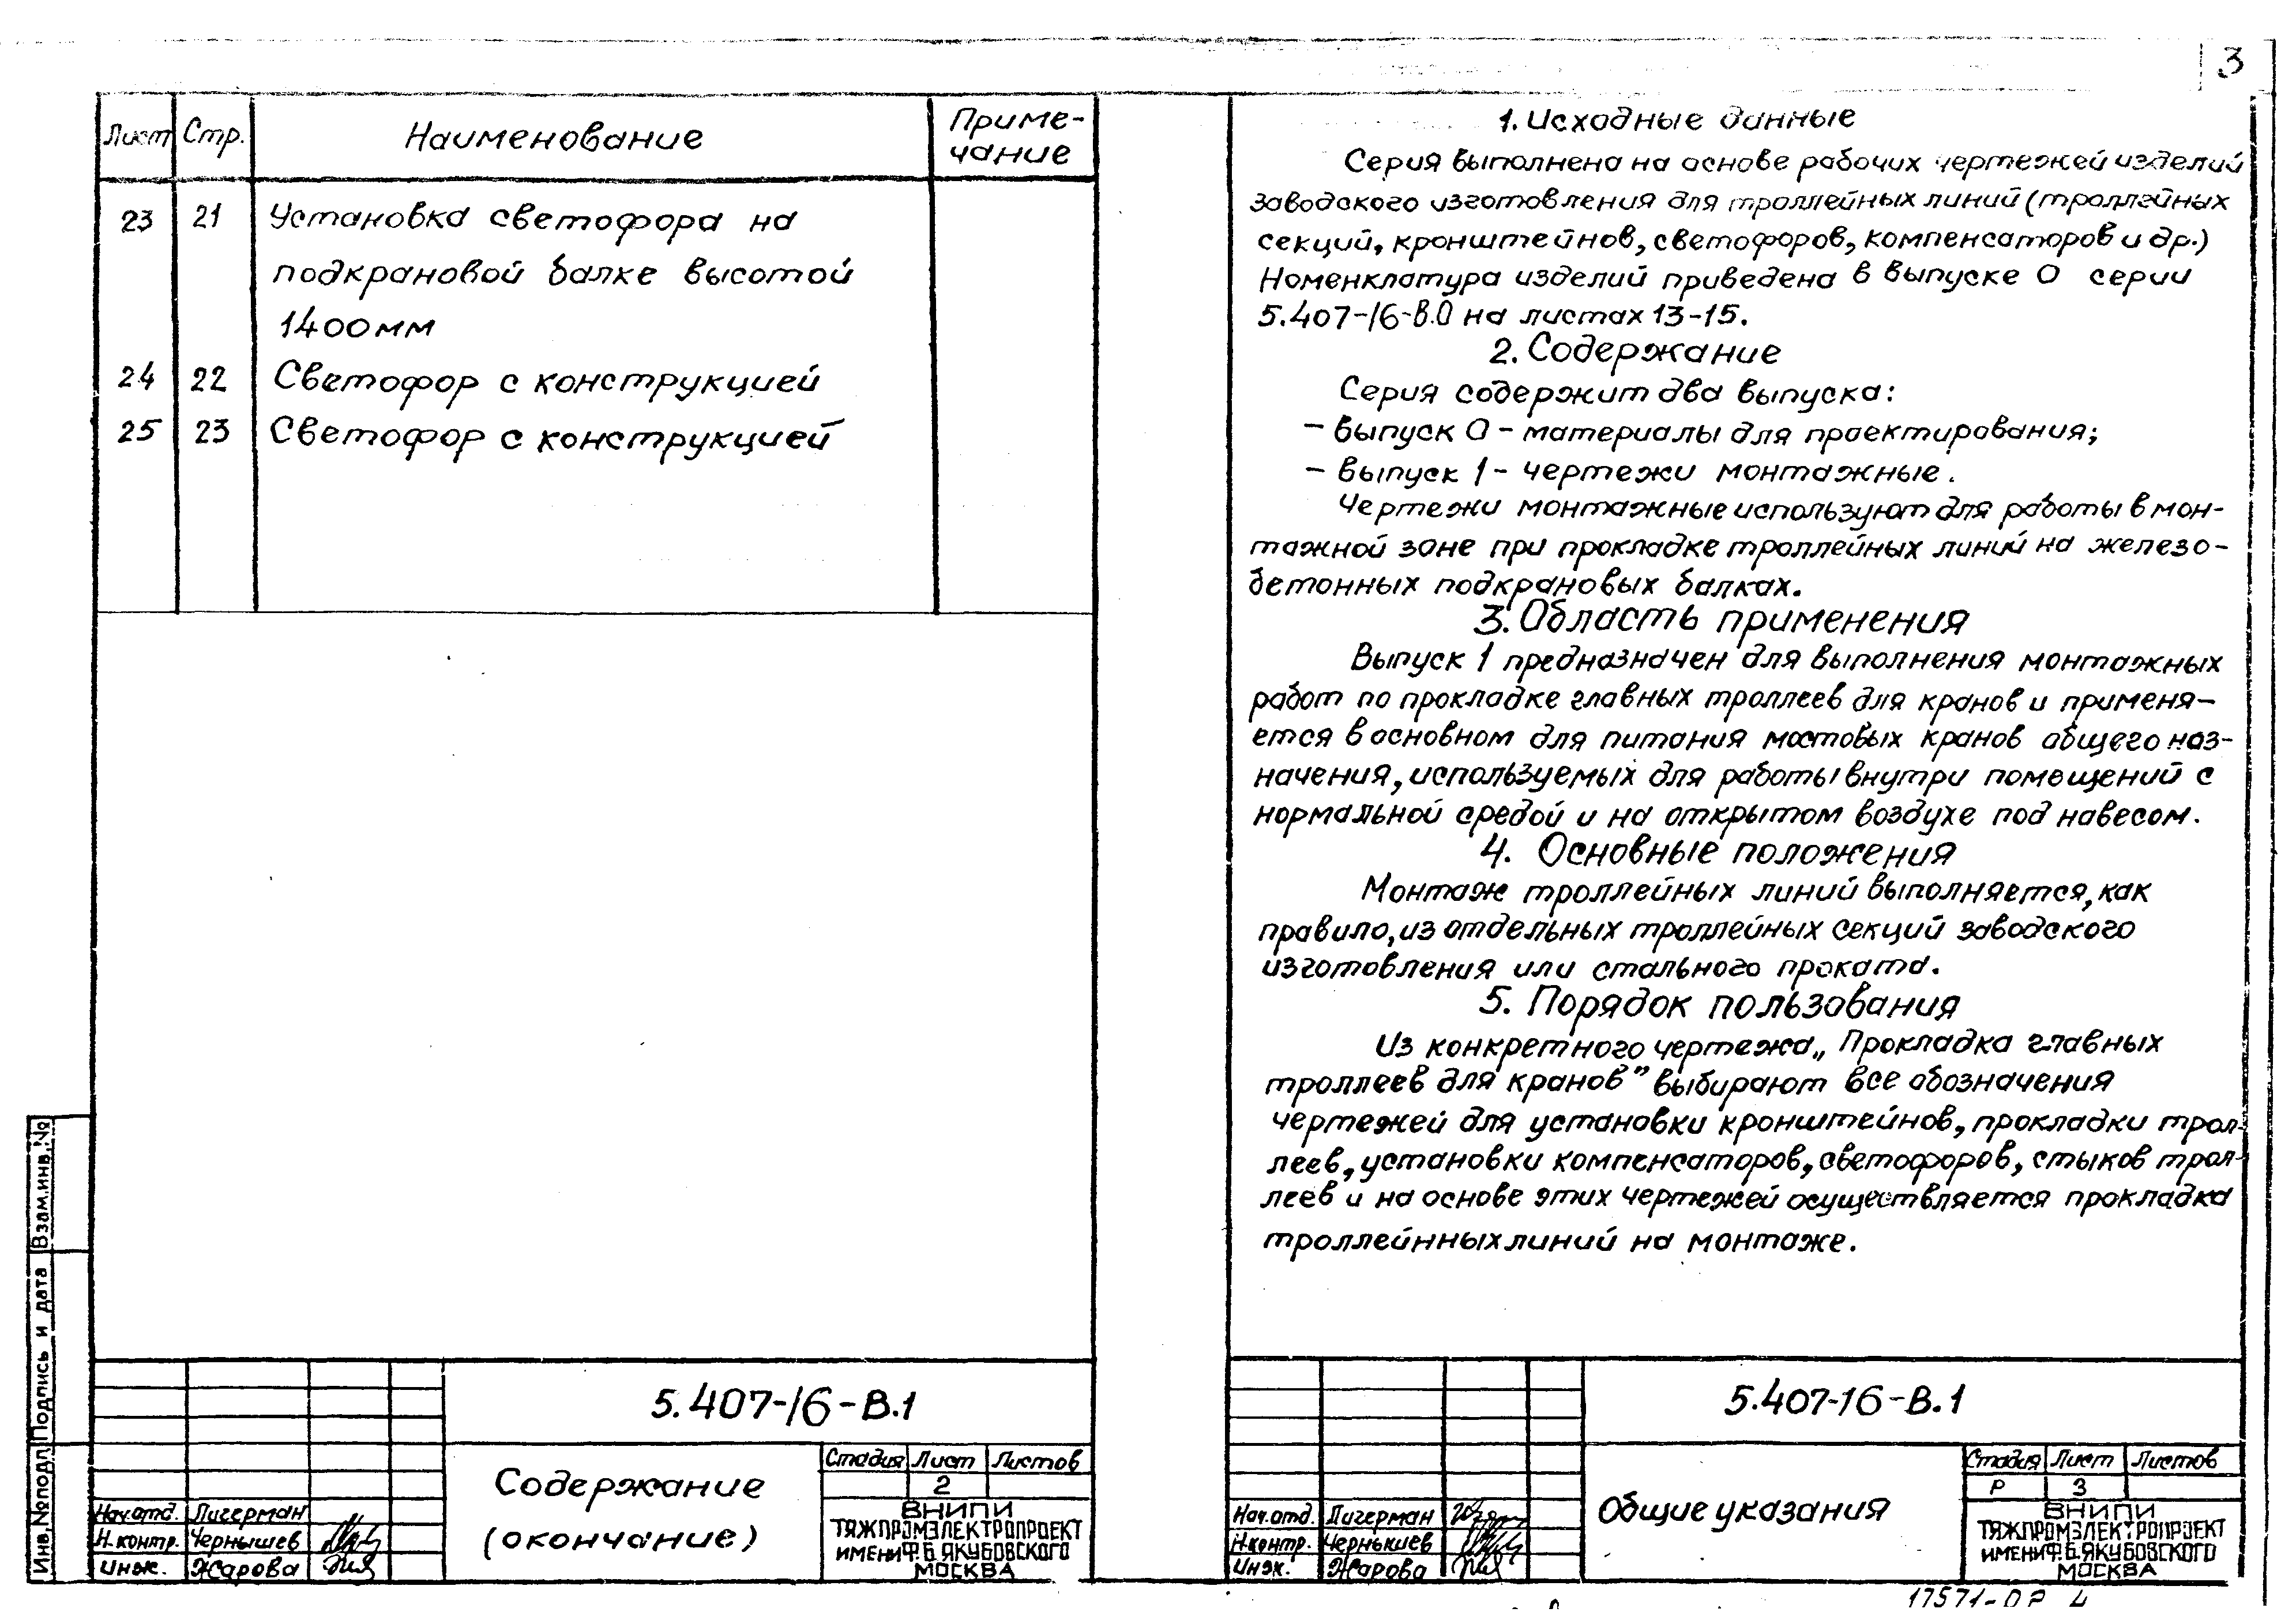 3
Лист Стр. Наименование Приме-
чание
23 21 Установка светофора на
подкрановой балке высотой
1400мм
24 22 Светофор с конструкцией
25 23 Светофор с конструкцией
Инв.№подл. Подпись и дата Взам.инв.№
5.407-16-В.1
Содержание
(окончание)
Стадия Лист Листов
2
ВНИПИ
ТЯЖПРОМЭЛЕКТРОПРОЕКТ
ИМЕНИ Ф.Б. ЯКУБОВСКОГО
МОСКВА
Нач.отд. Лигерман
Н.контр. Чернышев
Инж. Жарова
1. Исходные данные
Серия выполнена на основе рабочих чертежей изделий
заводского изготовления для троллейных линий (троллейных
секций, кронштейнов, светофоров, компенсаторов и др.)
Номенклатура изделий приведена в выпуске 0 серии
5.407-16-В.0 на листах 13-15.
2. Содержание
Серия содержит два выпуска:
- выпуск 0 - материалы для проектирования;
- выпуск 1 - чертежи монтажные.
Чертежи монтажные используют для работы в мон-
тажной зоне при прокладке троллейных линий на железо-
бетонных подкрановых балках.
3. Область применения
Выпуск 1 предназначен для выполнения монтажных
работ по прокладке главных троллеев для кранов и применя-
ется в основном для питания мостовых кранов общего наз-
начения, используемых для работы внутри помещений с
нормальной средой и на открытом воздухе под навесом.
4. Основные положения
Монтаж троллейных линий выполняется, как
правило, из отдельных троллейных секций заводского
изготовления или стального проката.
5. Порядок пользования
Из конкретного чертежа „Прокладка главных
троллеев для кранов” выбирают все обозначения
чертежей для установки кронштейнов, прокладки трол-
леев, установки компенсаторов, светофоров, стыков трол-
леев и на основе этих чертежей осуществляется прокладка
троллейнных линий на монтаже.
5.407-16-В.1
Общие указания
Стадия Лист Листов
Р 3
ВНИПИ
ТЯЖПРОМЭЛЕКТРОПРОЕКТ
ИМЕНИ Ф.Б. ЯКУБОВСКОГО
МОСКВА
Нач.отд. Лигерман
Н.контр. Чернышев
Инж. Жарова
4